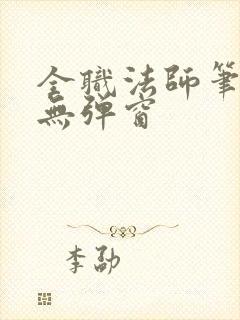 全職法師筆
無彈窗
李勐